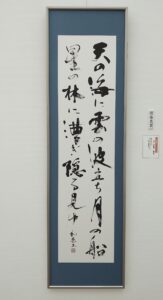 天の海に雲の波立ち月の船
星の林に漕ぎ隠る見ゆ